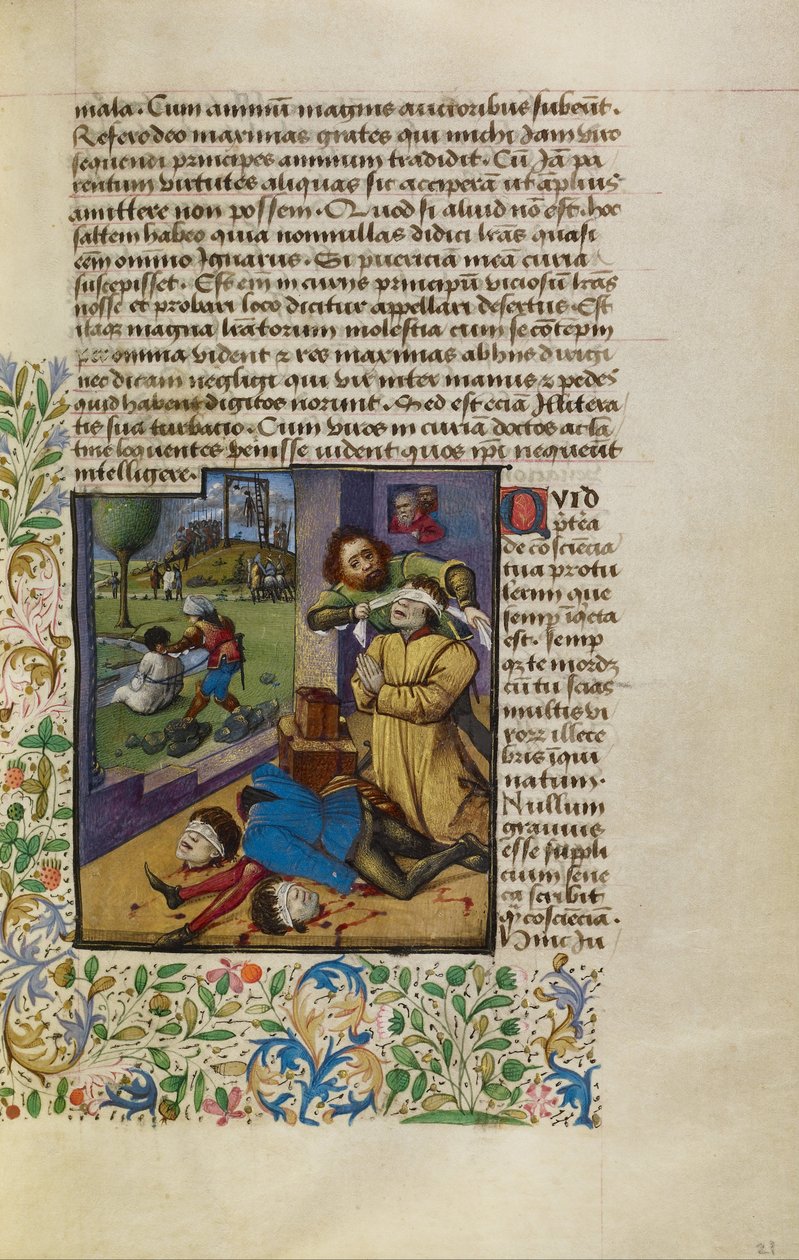 mala. Cum animū magnis auctoribus subeūt.
Refero deo maximas grates qui michi Jam viro
sequendi principes animum tradidit. Cū Jā pa
rentum virtutes aliquas sic acceperā ut āplius
amittere non possem. Quod si aliud nō est. hoc
saltem habeo quia nonnullas didici lr̄as quasi
eēm omnino Ignarus. Si puericiā meā curia
suscepisset. Est em̄ in curiis principū viciosū lr̄as
nosse et probari loco dicitur appellari desertus. Est
itaq magna lr̄atorum molestia cum se cōtepni
per omnia vident ⁊ res maximas ab hiis dirigi
nec dicam negligi qui vix inter manus ⁊ pedes
quid habent digitos norunt. Sed est eciā Illitera
tis sua turbacio. Cum viros in curia doctos ac la
tine loquentes venisse vident quos ip̄i nequeūt
intelligere.
QVID
p̄t̄ea
de cōsciēcia
tua protu
lerim que
semp īq̄eta
est. semp
q te mordz
cū tu scias
multis vi
rorz illece
bris īqui
natum.
Nullum
gravius
esse suppli
cium sene
ca scribit
q̄ cōsciēciā.
Hinc Ju
21